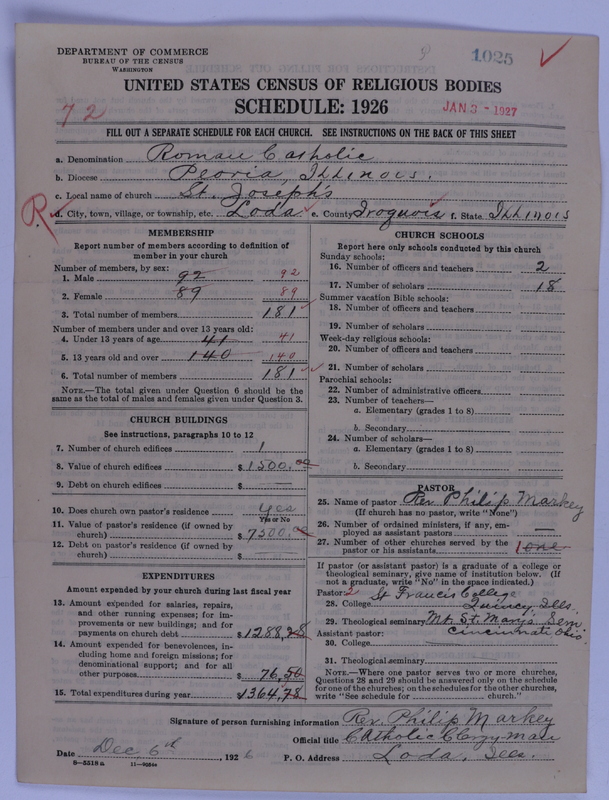 DEPARTMENT OF COMMERCE
BUREAU OF THE CENSUS
WASHINGTON
1025
UNITED STATES CENSUS OF RELIGIOUS BODIES
SCHEDULE: 1926
JAN 3 - 1927
72
FILL OUT A SEPARATE SCHEDULE FOR EACH CHURCH. SEE INSTRUCTIONS ON THE BACK OF THIS SHEET
a. Denomination Roman Catholic
b. Diocese Peoria, Illinois.
c. Local name of church St. Joseph's
R
d. City, town, village, or township, etc. Loda e. County Iroquois f. State Illinois
MEMBERSHIP
Report number of members according to definition of
member in your church
Number of members, by sex:
1. Male 92 92
2. Female 89 89
3. Total number of members 181
Number of members under and over 13 years old:
4. Under 13 years of age 41 41
5. 13 years old and over 140 140
6. Total number of members 181
NOTE.—The total given under Question 6 should be
the same as the total of males and females given under Question 3.
CHURCH BUILDINGS
See instructions, paragraphs 10 to 12
7. Number of church edifices 1
8. Value of church edifices $1500.00
9. Debt on church edifices $ —
10. Does church own pastor's residence Yes
Yes or No
11. Value of pastor's residence (if owned by
church) $7500.00
12. Debt on pastor's residence (if owned by
church) $
EXPENDITURES
Amount expended by your church during last fiscal year
13. Amount expended for salaries, repairs,
and other running expenses; for im-
provements or new buildings; and for
payments on church debt $1288,28
14. Amount expended for benevolences, in-
cluding home and foreign missions; for
denominational support; and for all
other purposes $76,50
15. Total expenditures during year $1364,78
CHURCH SCHOOLS
Report here only schools conducted by this church
Sunday schools:
16. Number of officers and teachers 2
17. Number of scholars 18
Summer vacation Bible schools:
18. Number of officers and teachers
19. Number of scholars
Week-day religious schools:
20. Number of officers and teachers
21. Number of scholars
Parochial schools:
22. Number of administrative officers
23. Number of teachers—
a. Elementary (grades 1 to 8)
b. Secondary
24. Number of scholars—
a. Elementary (grades 1 to 8)
b. Secondary
PASTOR
25. Name of pastor Rev. Philip Markey
(If church has no pastor, write "None")
26. Number of ordained ministers, if any, em-
ployed as assistant pastors —
27. Number of other churches served by the
pastor or his assistants 1 one
If pastor (or assistant pastor) is a graduate of a college or
theological seminary, give name of institution below. (If
not a graduate, write "No" in the space indicated.)
Pastor: 2 St Francis College
28. College Quincy, Ills.
29. Theological seminary Mt. St. Mary's Sem.
Assistant pastor: Cincinnati Ohio.
30. College
31. Theological seminary
NOTE.—Where one pastor serves two or more churches,
Questions 28 and 29 should be answered only on the schedule
for one of the churches; on the schedules for the other churches,
write "See schedule for church."
Signature of person furnishing information Rev. Philip Markey
Official title Catholic Clergyman
Date Dec, 6th, 1926 P. O. Address Loda, Ills.
8—5518a 11—9054a